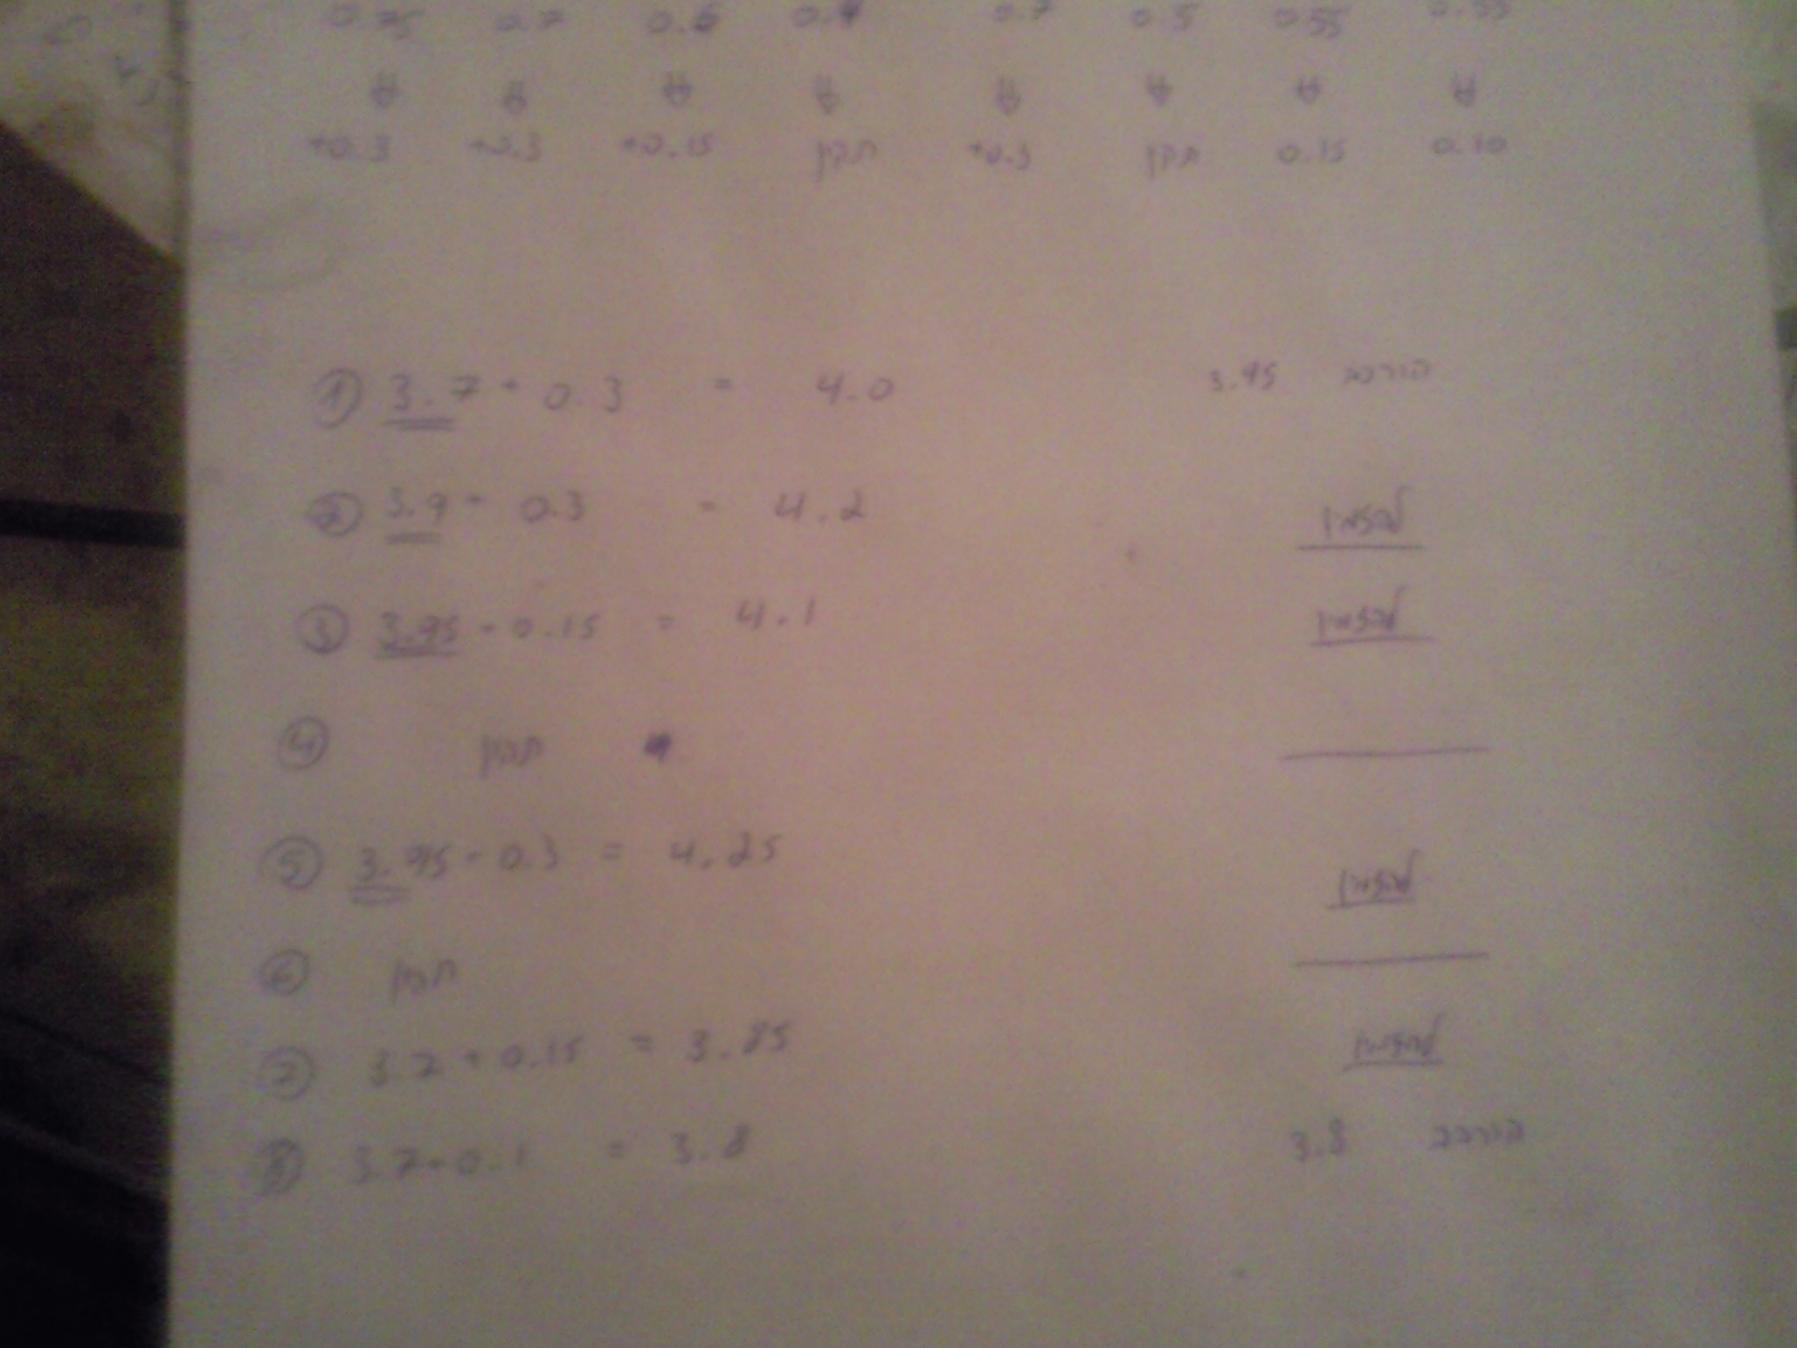 0.75 0.7 0.6 0.4 0.7 0.5 0.55 0.55
⇓ ⇓ ⇓ ⇓ ⇓ ⇓ ⇓ ⇓
+0.3 +0.3 +0.15 תקן +0.3 תקן 0.15 0.10
① 3.7 + 0.3 = 4.0 3.95 הורכב
② 3.9 + 0.3 = 4.2 להזמין
③ 3.95 + 0.15 = 4.1 להזמין
④ תקן
⑤ 3.95 + 0.3 = 4.25 להזמין
⑥ תקן
⑦ 3.7 + 0.15 = 3.85 להזמין
⑧ 3.7 + 0.1 = 3.8 3.8 הורכב